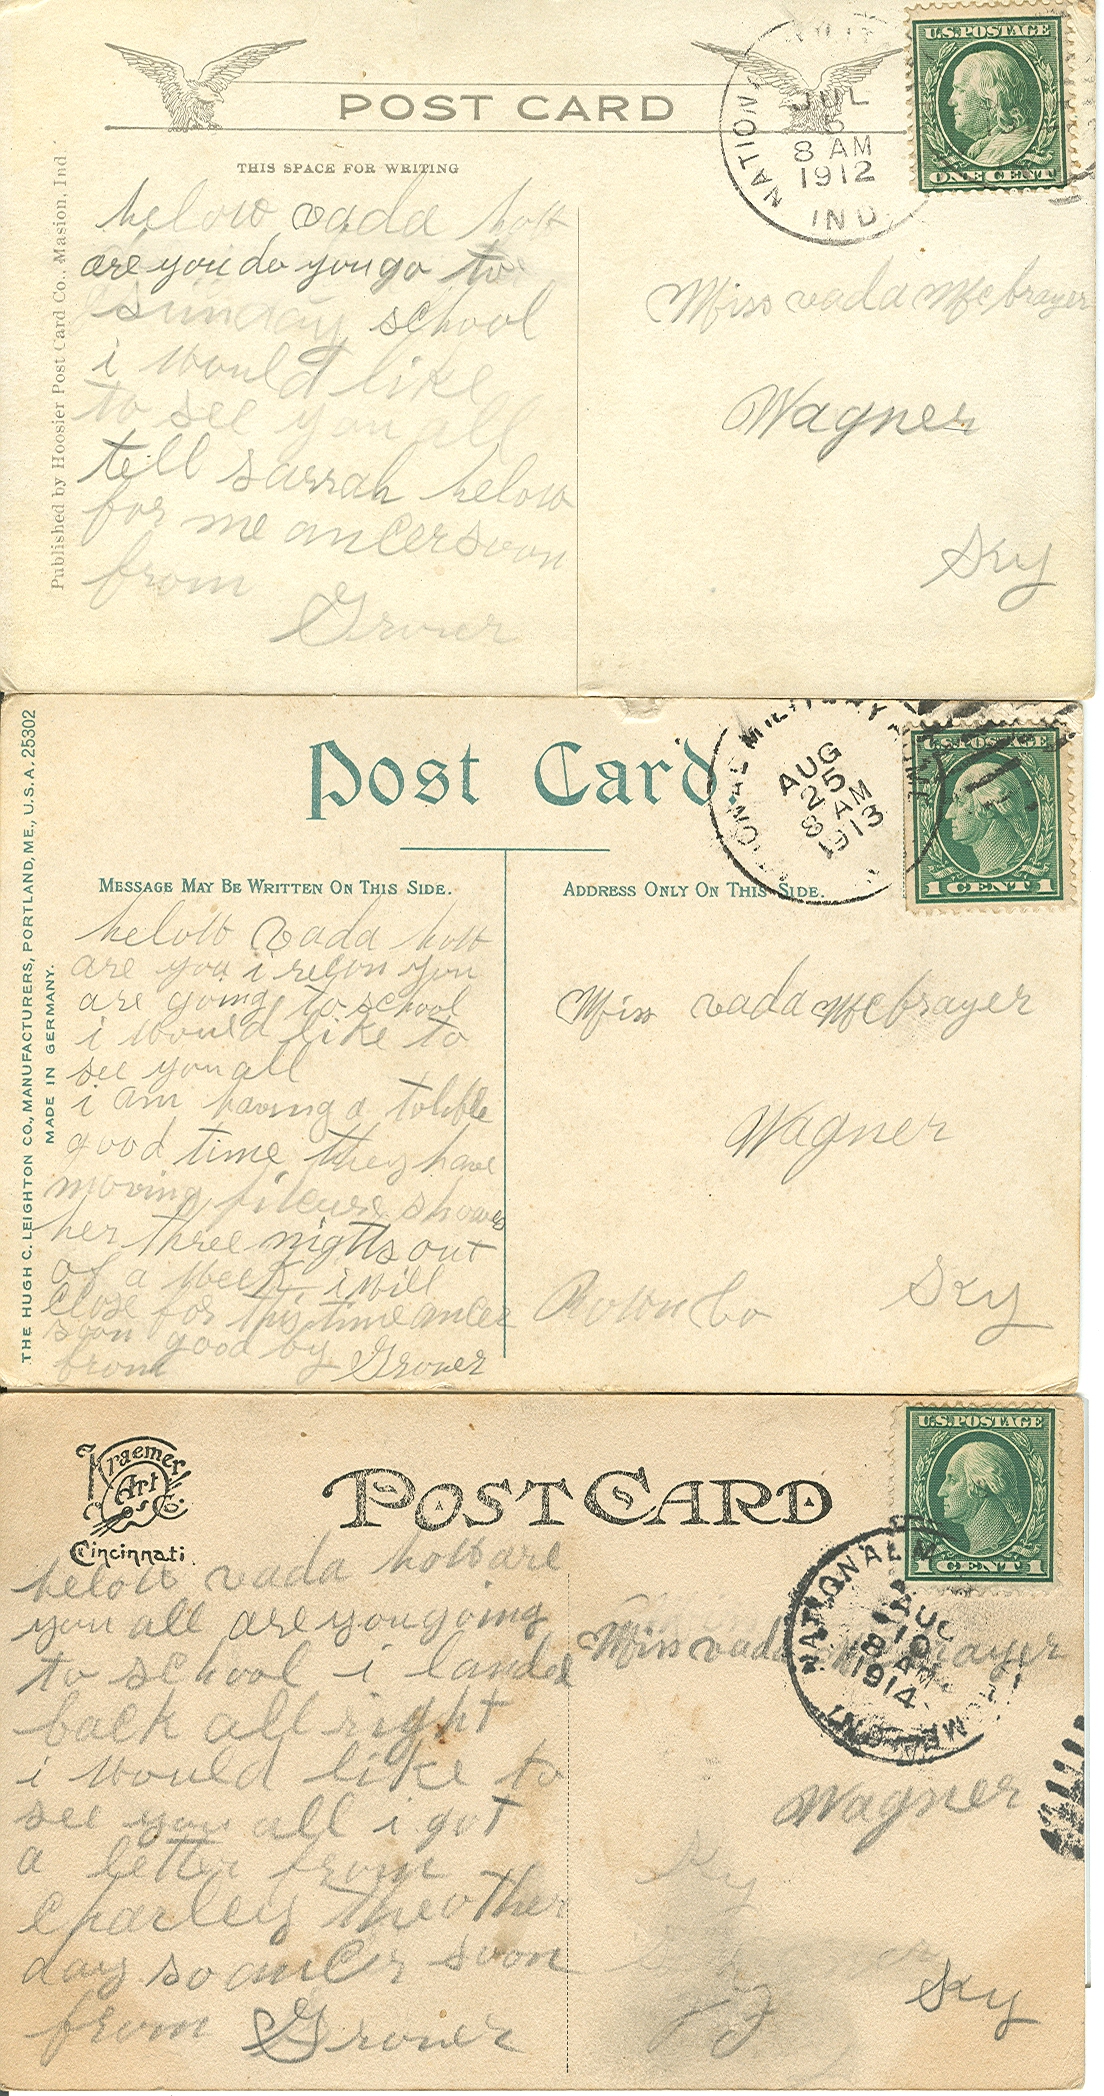 POST CARD
THIS SPACE FOR WRITING
Published by Hoosier Post Card Co., Masion, Ind
NATION
JUL
5
8 AM
1912
IND
U.S. POSTAGE
ONE CENT
helow vada how
are you do you go to
sunday school
i would like
to see you all
tell sarrah helow
for me ancer soon
from
Grover
Miss vada McBrayer
Wagner
Ky
Post Card.
THE HUGH C. LEIGHTON CO., MANUFACTURERS, PORTLAND, ME., U.S.A. 25302
MADE IN GERMANY.
MESSAGE MAY BE WRITTEN ON THIS SIDE.
ADDRESS ONLY ON THIS SIDE.
MILITARY HOME
AUG
25
8 AM
1913
U.S. POSTAGE
1 CENT 1
helow vada how
are you i recon you
are going to school
i would like to
see you all
i am having a tolible
good time they have
moving picture shows
her three nights out
of a week i will
close for this time ancer
soon good by
from Grover
Miss vada McBrayer
Wagner
Rown Co
Ky
Kraemer
Art
Co.
Cincinnati.
POST CARD
U.S. POSTAGE
1 CENT 1
NATIONAL
AUG
10
8 AM
1914
helow vada how are
you all are you going
to school i landed
back all right
i would like to
see you all i got
a letter from
Charley the other
day so ancer soon
from Grover
Miss vada McBrayer
Wagner
Ky
Ky